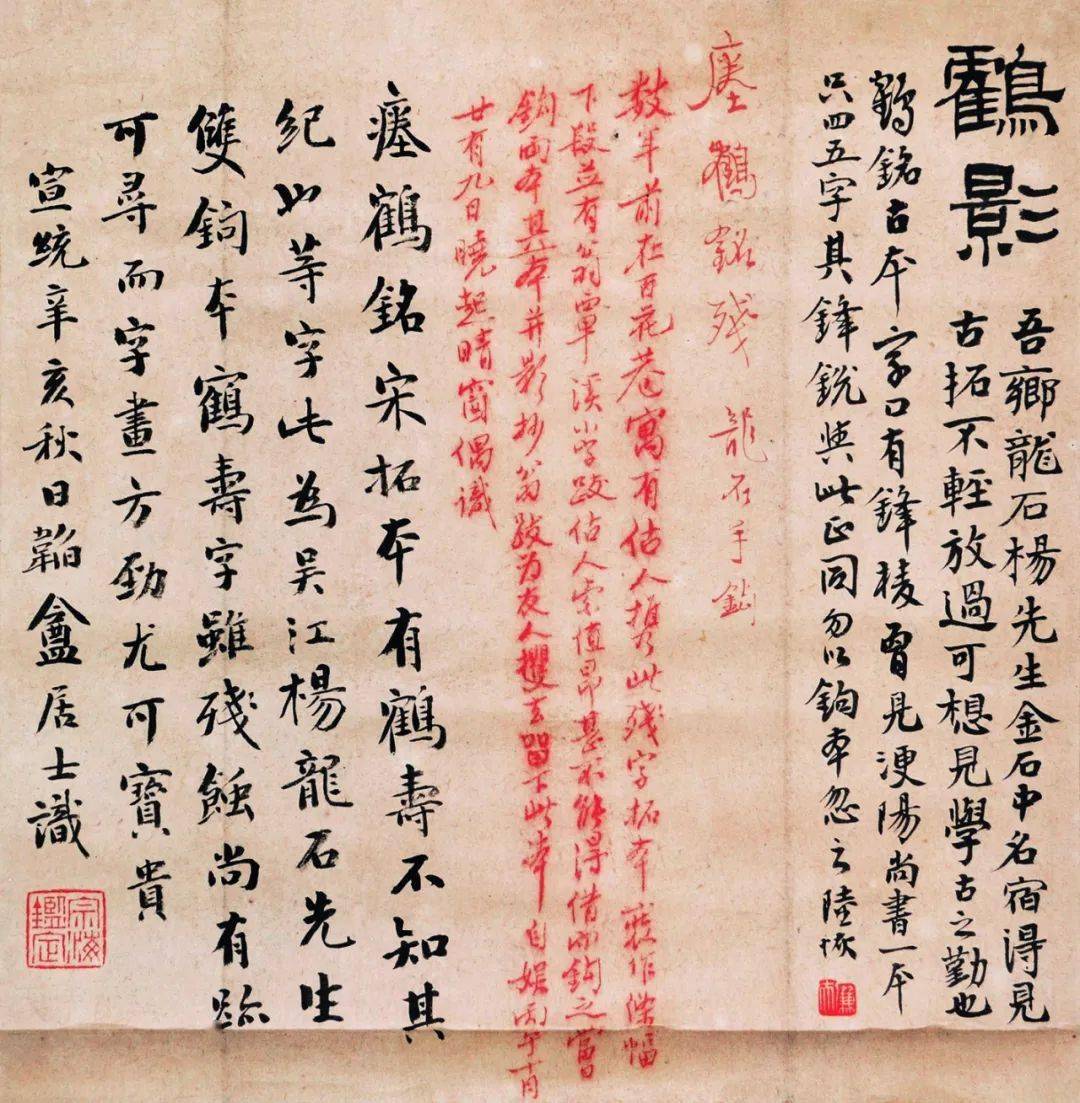 鶴影
吾鄉龍石楊先生金石中名宿得見
古拓不輕放過可想見學古之勤也
鶴銘古本字口有鋒棱曾見浭陽尚書一本
只四五字其鋒銳與此正同勿以鉤本忽之陸恢
瘞鶴銘殘 龍石手鉤
數年前在百花巷寓有估人攜此殘字拓本裝作條幅
下段並有翁覃溪小字跋估人索值昂甚不能得借而鉤之當
鉤兩本其一本并影抄翁跋为友人攫去留下此本自娛丙午十月
廿有九日曉起晴窗偶識
瘞鶴銘宋拓本有鶴壽不知其
紀也等字此為吴江楊龍石先生
雙鉤本鶴壽字雖殘蝕尚有跡
可尋而字畫方勁尤可寶貴
宣統辛亥秋日韜盦居士識